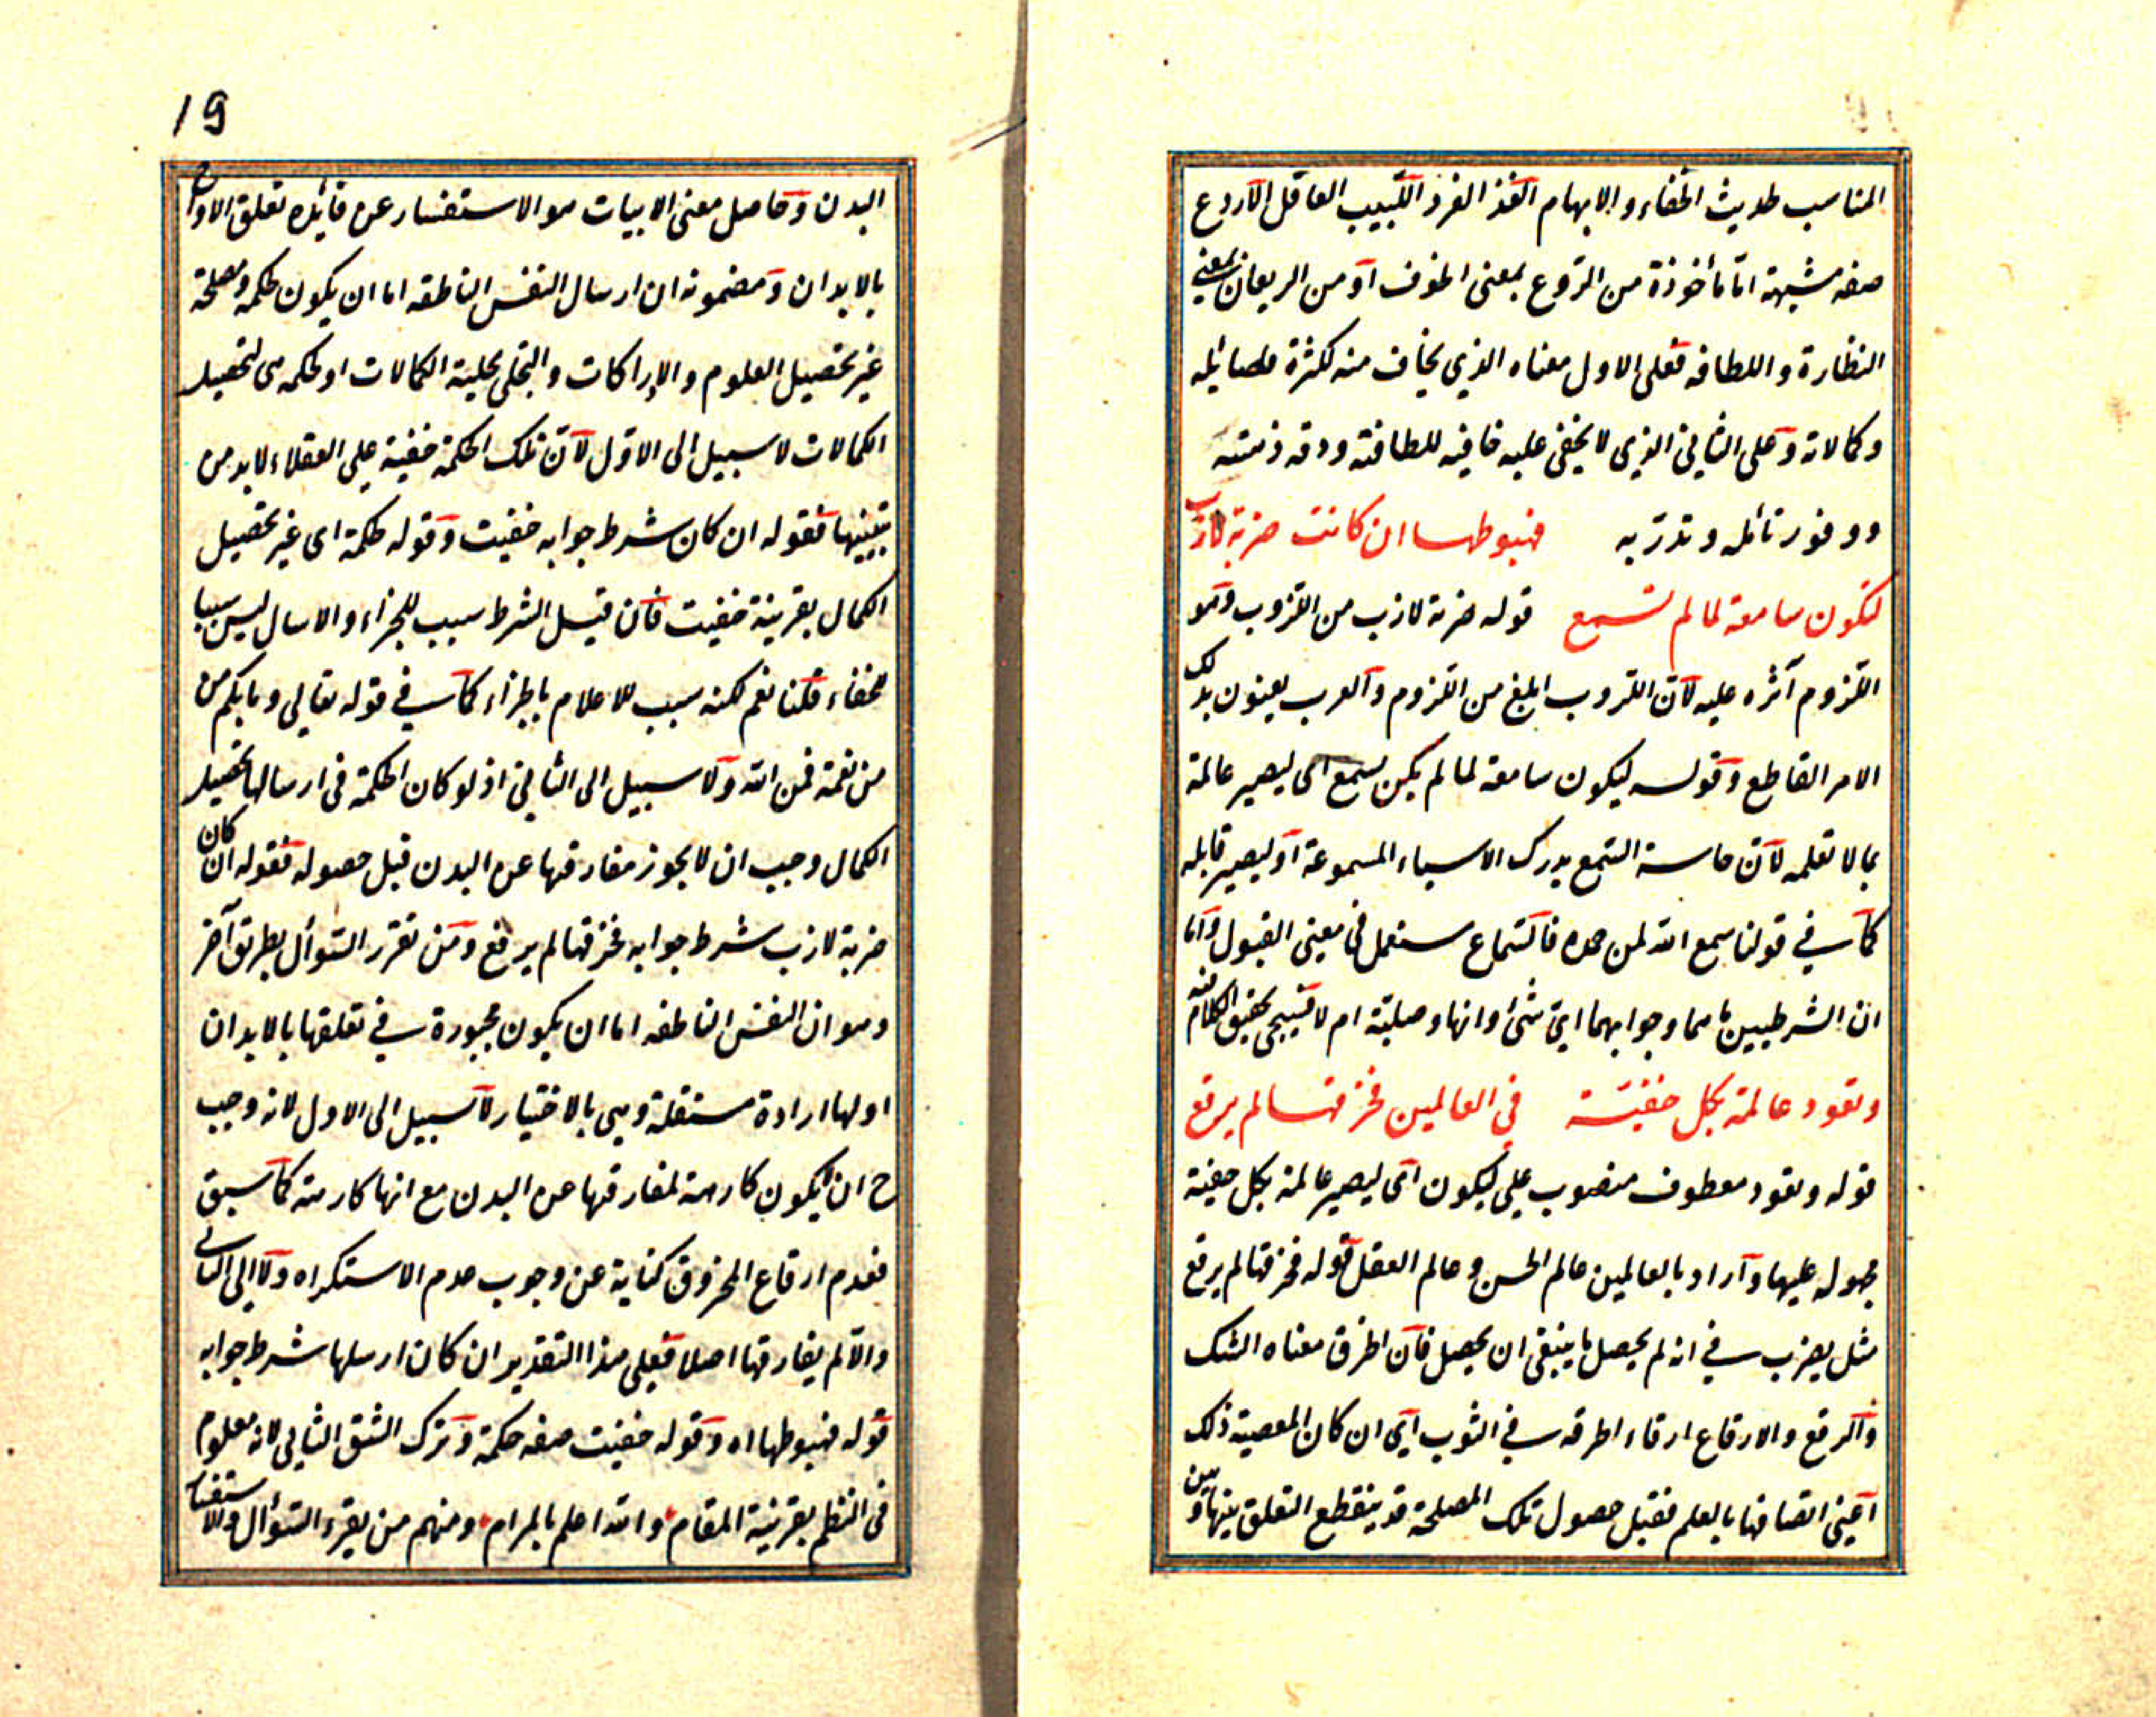 المناسب لحديث الخفاء والابهام الفذ الفرد اللبيب العاقل الاروع
صفه مشبهة امّا مأخوذة من الرّوع بمعنى الخوف او من الريعان بمعنى
النظارة واللطافه فعلى الاول معناه الذي يخاف منه لكثرة فضايله
وكمالاته وعلى الثاني الذي لا يخفى عليه خافيه للطافته ودقه ذهنه
ووفور تأمله وتدرّبه فهبوطها ان كانت ضربة لازب
لتكون سامعة لما لم تسمع قوله ضربة لازب من اللزوب وهو
اللزوم آثره عليه لانّ اللزوب ابلغ من اللزوم والعرب يعنون بذلك
الامر القاطع وقوله ليكون سامعة لما لم يكن يسمع اى ليصير عالمة
بما لا تعلمه لانّ حاسة السّمع يدرك الاشياء المسموعة او ليصير قابله
كما في قولنا سمع الله لمن حمده فالسّماع يستعمل في معنى القبول وامّا
ان الشرطيين ما هما وجوابهما ايّ شئ وانها وصليّة ام لا فسيجئ تحقيق الكلام فيه
وتعود عالمة بكل خفيّة في العالمين فخرقها لم يرقع
قوله وتعود معطوف منصوب على ليكون اى ليصير عالمة بكل خفية
مجهوله عليها واراد بالعالمين عالم الحسن وعالم العقل قوله فخرقها لم يرقع
مثل يضرب في انه لم يحصل ما ينبغى ان يحصل فان الخرق معناه الشك
والرقع والارقاع ارقاء الخرقه في الثوب اى ان كان المعصية ذلك
اعنى اتصافها بالعلم فقبل حصول تلك المصلحة قد ينقطع التعلق بينها وبين
19
البدن وحاصل معنى الابيات هو الاستفسار عن فايده تعلق الارواح
بالابدان ومضمونه ان ارسال النفس الناطقه اما ان يكون لحكمه ومصلحة
غير تحصيل العلوم والادراكات والتجلى بحلية الكمالات او لحكمه هى تحصيل
الكمالات لا سبيل الى الاوّل لانّ تلك الحكمة خفية على العقلاء لابد من
تبيينها فقوله ان كان شرط جوابه خفيت وقوله حكمة اى غير تحصيل
الكمال بقرينة خفيت فان قيل الشرط سبب للجزاء والارسال ليس سببا
للخفاء قلنا نعم لكنه سبب للاعلام بالجزاء كما في قوله تعالى وما بكم من
من نعمة فمن الله ولا سبيل الى الثاني اذ لو كان الحكمة فى ارسالها تحصيل
الكمال وجب ان لا يجوز مفارقتها عن البدن قبل حصوله فقوله ان كان
ضربة لازب شرط جوابه فخرقها لم يرقع ومن تقرر السّوأل بطريق آخر
وهو ان النفس الناطقه اما ان يكون مجبورة في تعلقها بالابدان
او لها ارادة مستقلة وهى بالاختيار لا سبيل الى الاول لانه وجب
ح ان يكون كارهة لمفارقتها عن البدن مع انها كارهة كما سبق
فعدم ارقاع المخروق كناية عن وجوب عدم الاستكراه ولا الى الثاني
والّا لم يفارقها اصلا فعلى هذا التقدير ان كان ارسلها شرط جوابه
قوله فهبوطها اه وقوله خفيت صفه حكمة وترك الشق الثاني لانه معلوم
فى النظم بقرينة المقام والله اعلم بالمرام ومنهم من يقرء السّوأل والاستفسار